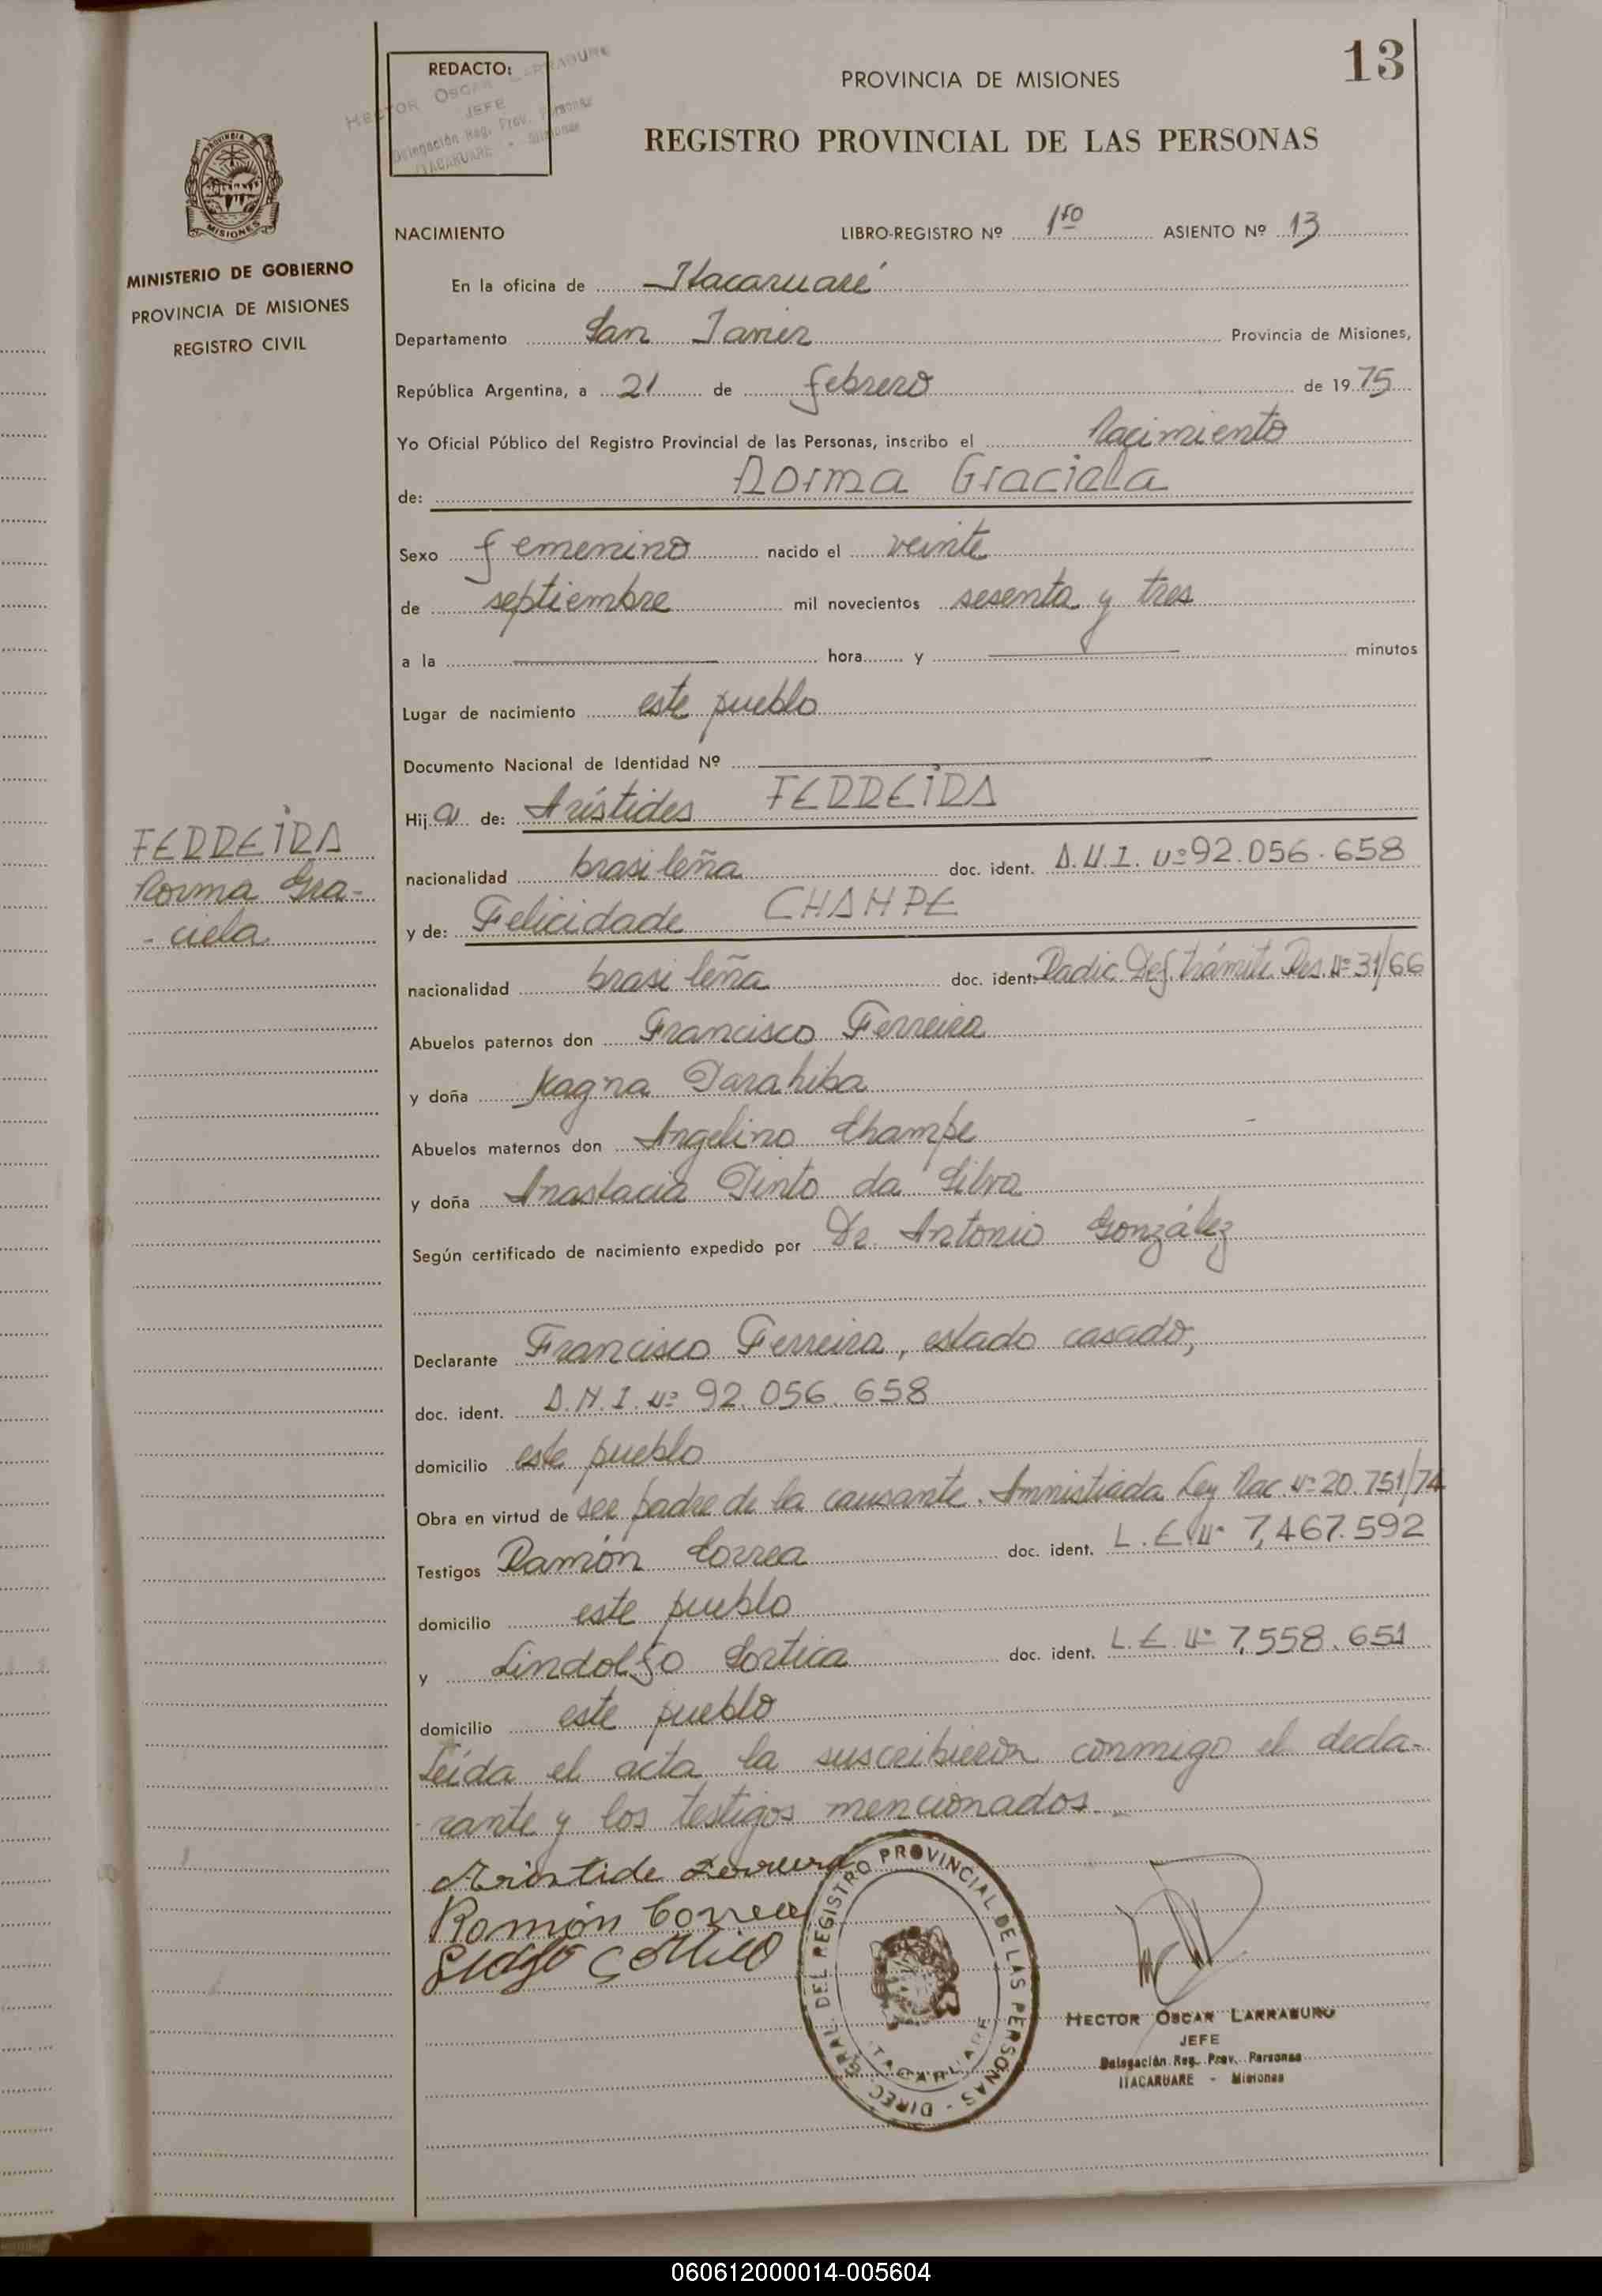 13
REDACTO:
HECTOR OSCAR LARRABURU
JEFE
Delegación Reg. Prov. Personas
ITACARUARE - Misiones
PROVINCIA DE MISIONES
REGISTRO PROVINCIAL DE LAS PERSONAS
PROVINCIA
MISIONES
MINISTERIO DE GOBIERNO
PROVINCIA DE MISIONES
REGISTRO CIVIL
NACIMIENTO LIBRO-REGISTRO Nº 1ro ASIENTO Nº 13
En la oficina de Itacaruaré
Departamento San Javier Provincia de Misiones,
República Argentina, a 21 de febrero de 1975
Yo Oficial Público del Registro Provincial de las Personas, inscribo el Nacimiento
de: Norma Graciela
Sexo femenino nacido el veinte
de septiembre mil novecientos sesenta y tres
a la hora y minutos
Lugar de nacimiento este pueblo
Documento Nacional de Identidad Nº
Hija de: Arístides FERREIRA
nacionalidad brasileña doc. ident. D.N.I. Nº 92.056.658
y de: Felicidade CHAMPE
nacionalidad brasileña doc. ident. Radic. Def. trámite Res. Nº 31/66
Abuelos paternos don Francisco Ferreira
y doña Magna Parahiba
Abuelos maternos don Angelino Champe
y doña Anastacia Pinto da Silva
Según certificado de nacimiento expedido por Dr. Antonio González
Declarante Francisco Ferreira, estado casado,
doc. ident. D.N.I. Nº 92.056.658
domicilio este pueblo
Obra en virtud de ser padre de la causante. Amnistiada Ley Nac. Nº 20.751/74
Testigos Ramón Correa doc. ident. L.E. Nº 7,467.592
domicilio este pueblo
y Lindolfo Cortica doc. ident. L.E. Nº 7,558.651
domicilio este pueblo
Leída el acta la suscribieron conmigo el decla-
rante y los testigos mencionados.-
FERREIRA
Norma Gra-
-ciela
Aristide Ferreira
Ramón Correa
DIREC. GRAL. DEL REGISTRO PROVINCIAL DE LAS PERSONAS
ITACARUARE
HECTOR OSCAR LARRABURU
JEFE
Delegación Reg. Prov. Personas
ITACARUARE - Misiones
060612000014-005604